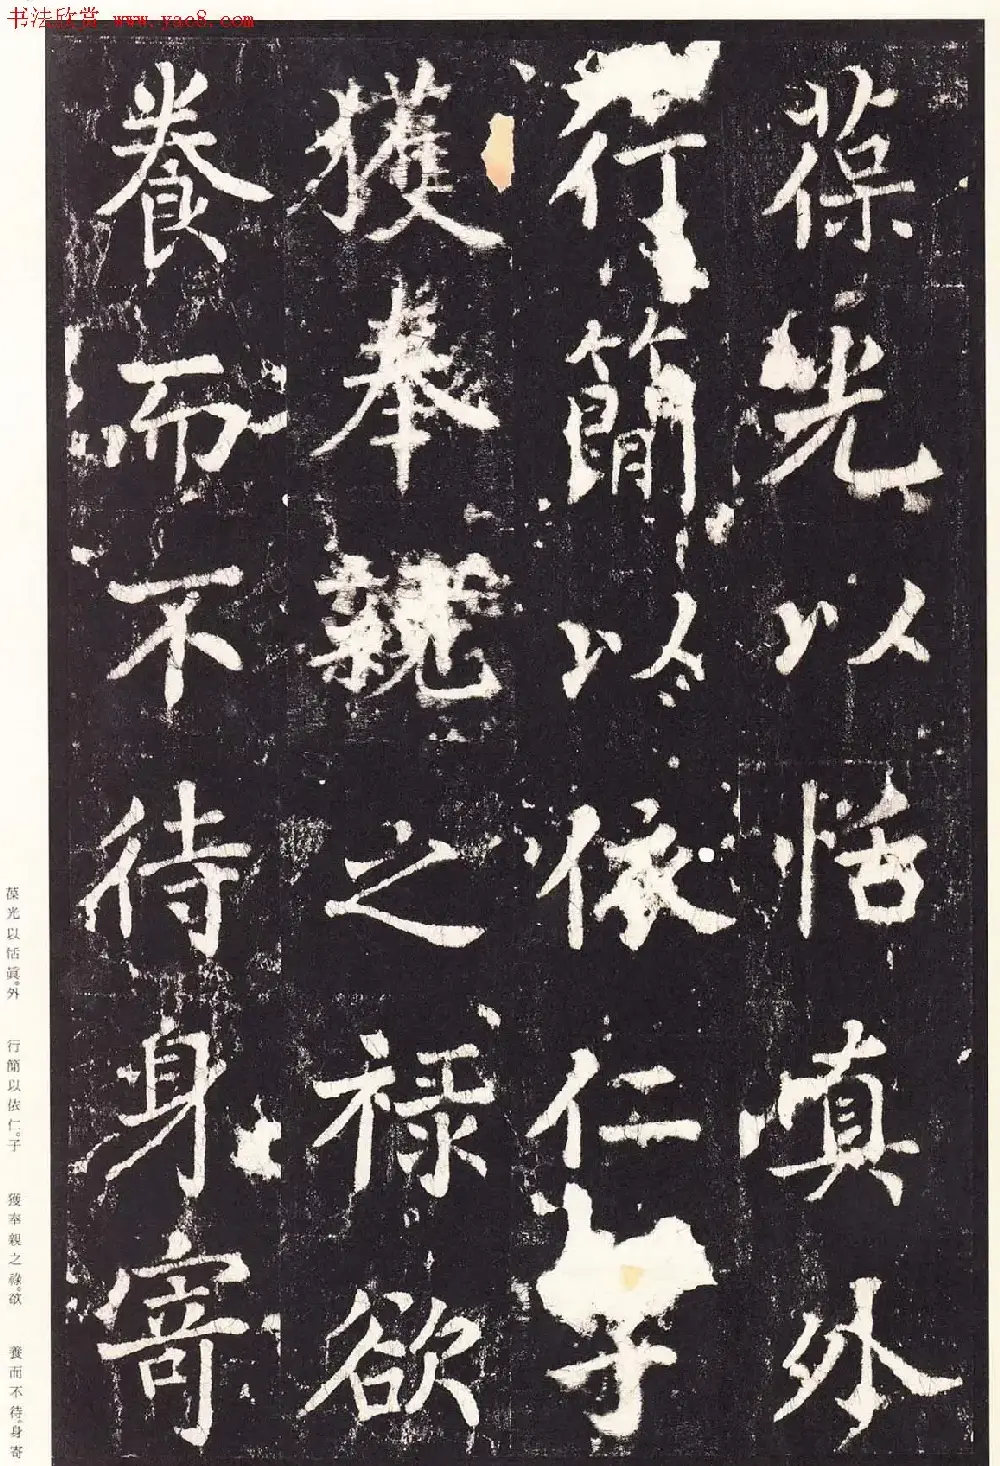 书法欣赏 www.yac8.com
葆光以恬真外
行簡以依仁于
獲奉親之祿欲
養而不待身寄
葆光以恬真。外 行簡以依仁。于 獲奉親之祿。欲 養而不待。身寄